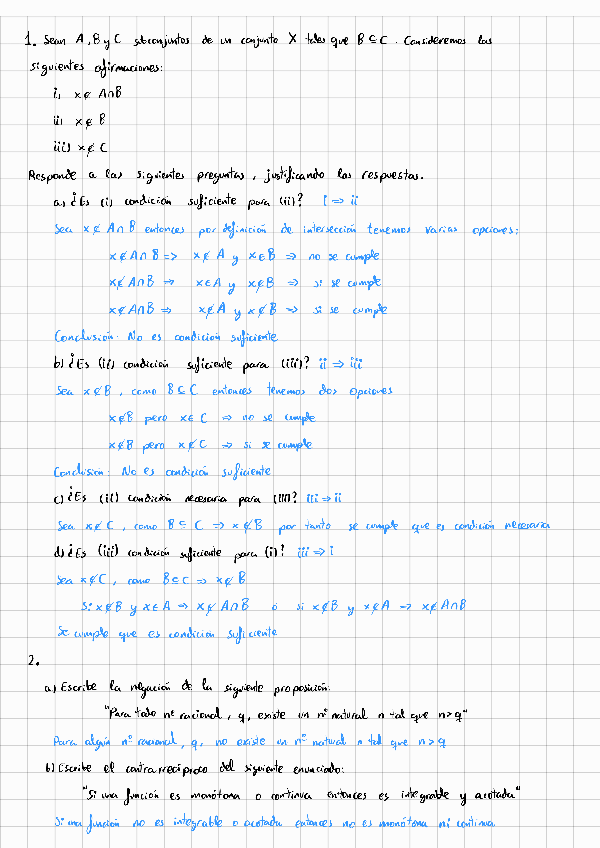 1. Sean A, B y C subconjuntos de un conjunto X tales que B ⊆ C. Consideremos las
siguientes afirmaciones:
i) x ∉ A∩B
ii) x ∉ B
iii) x ∉ C
Responde a las siguientes preguntas, justificando las respuestas.
a) ¿Es (i) condición suficiente para (ii)? i ⇒ ii
Sea x ∉ A∩B entonces por definición de intersección tenemos varias opciones:
x ∉ A∩B => x ∉ A y x ∈ B => no se cumple
x ∉ A∩B => x ∈ A y x ∉ B => si se cumple
x ∉ A∩B => x ∉ A y x ∉ B => si se cumple
Conclusión: No es condición suficiente
b) ¿Es (ii) condición suficiente para (iii)? ii => iii
Sea x ∉ B, como B ⊆ C entonces tenemos dos opciones
x ∉ B pero x ∈ C => no se cumple
x ∉ B pero x ∉ C => si se cumple
Conclusion: No es condición suficiente
c) ¿Es (ii) condición necesaria para (iii)? iii => ii
Sea x ∉ C, como B ⊆ C => x ∉ B por tanto se cumple que es condición necesaria
d) ¿Es (iii) condición suficiente para (i)? iii => i
Sea x ∉ C, como B ⊆ C => x ∉ B
Si x ∉ B y x ∈ A => x ∉ A∩B o si x ∉ B y x ∉ A => x ∉ A∩B
Se cumple que es condición suficiente
2.
a) Escribe la negación de la siguiente proposición:
"Para todo nº racional, q, existe un nº natural n tal que n > q"
Para algún nº racional, q, no existe un nº natural n tal que n > q
b) Escribe el contrarrecíproco del siguiente enunciado:
"Si una función es monótona o continua entonces es integrable y acotada"
Si una función no es integrable o acotada entonces no es monótona ni continua